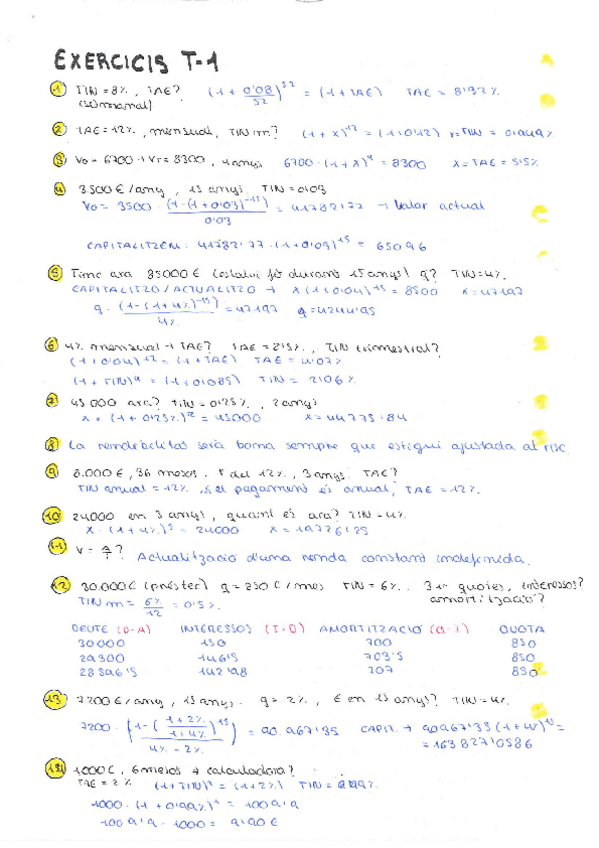 EXERCICIS T-1
1 TIN = 8%, TAE? (1 + 0'08/52)^52 = (1+TAE) TAE = 8'32%
(setmanal)
2 TAE = 12%, mensual, TIN m? (1+x)^12 = (1+0'12)
3 Vo = 6700 Vf = 8300, 4 anys 6700·(1+x)^4 = 8300 x = TAE = 5'5%
4 3500€/any, 15 anys, TIN = 0'03
Vo = 3500 · (1-(1+0'03)^-15)/0'03 = 41782'77 → Valor actual
CAPITALITZEM: 41782'77·(1+0'03)^15 = 65096
5 Tinc ara 85000€ durant 15 anys! q? TIN = 4%.
CAPITALITZO/ACTUALITZO → x(1+0'04)^15 = 8500 x = 47197
q · (1-(1+4%)^-15)/4% = 47197 q = 4244'95
6 4% mensual → TAE? TAE = 8'5%, TIN trimestral?
(1+0'04)^12 = (1+TAE) TAE = 4'07%
(1+TIN)^4 = (1+0'085) TIN = 2'06%
7 45000 ara? TIN = 0'25%, 2 anys
x = (1+0'25%)^2 = 45000 x = 44775'84
8 La rendebilitas serà bona sempre que estigui ajustada al risc.
9 8.000€, 36 mesos. r del 12%, 3 anys. TAE?
TIN anual = 12%, si el pagament és anual, TAE = 12%.
10 24000 en 3 anys, quant és ara? TIN = 4%
x·(1+4%)^5 = 24000 x = 19726'25
11 V = a/i? Actualització d'una renda constant indefinida.
12 30.000€ (préstec) q = 850€/mes TIN = 6%. 3 1r quotes, interessos?
amortització?
TIN m = 6%/12 = 0'5%.
DEUTE (D-A) INTERESSOS (I·D) AMORTITZACIÓ (Q-I) QUOTA
30000 150 700 850
29300 146'5 703'5 850
28596'5 142'98 707 850
13 7200€/any, 15 anys. q = 2%, € en 15 anys? TIN = 4%
7200 · (1-(1+2%/1+4%)^15)/(4%-2%) = 90.967'35 CAPIT. → 90967'35(1+4%)^15 =
= 163827'0586
14 1000€, 6 mesos → calculadora?
TAE = 2% (1+TIN)^2 = (1+2%) TIN = 0'99%
1000·(1+0'99%)^1 = 1009'9
1009'9 - 1000 = 9'90€